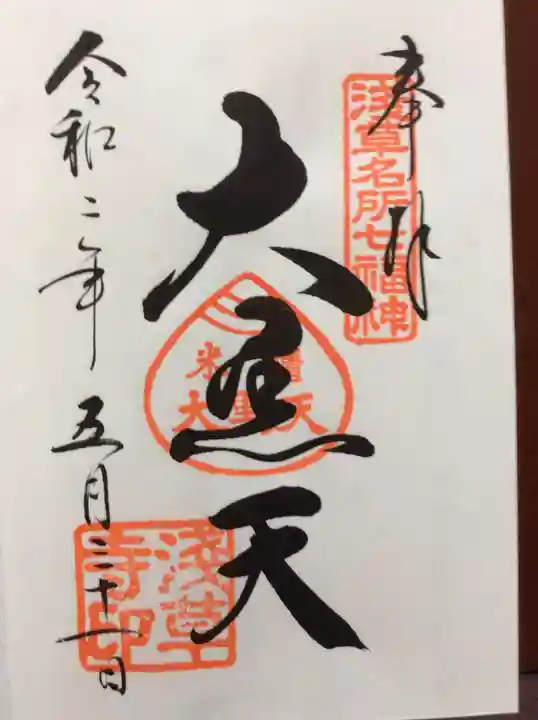 奉拝
浅草名所七福神
大黒天
米
大黒天
令和二年五月三十一日
浅草
寺印